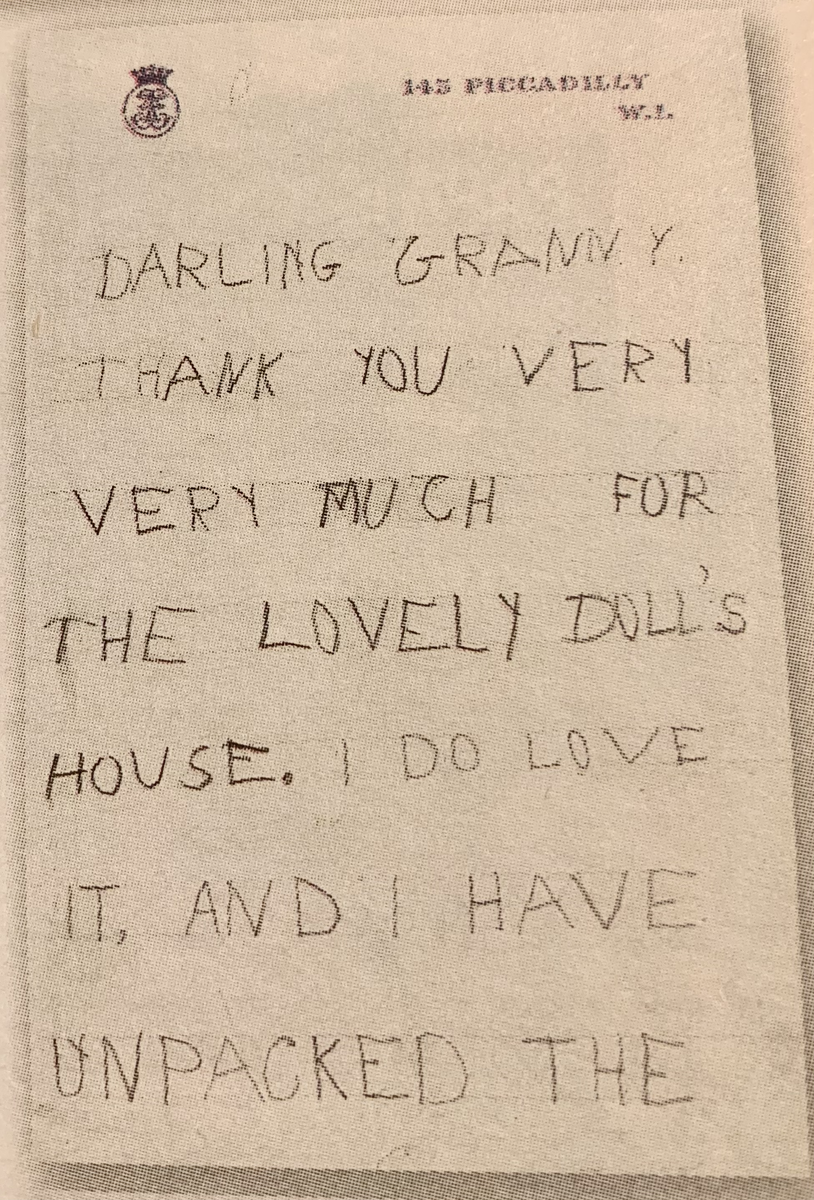 145 PICCADILLY
W.1.
DARLING GRANNY.
THANK YOU VERY
VERY MUCH FOR
THE LOVELY DOLL'S
HOUSE. I DO LOVE
IT, AND I HAVE
UNPACKED THE